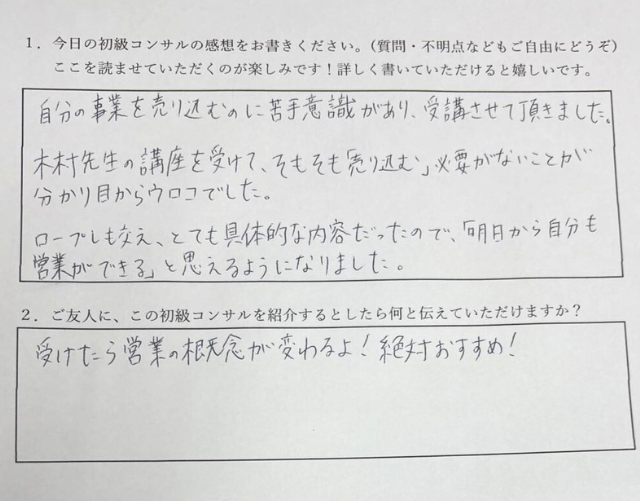 1．今日の初級コンサルの感想をお書きください。（質問・不明点などもご自由にどうぞ）
ここを読ませていただくのが楽しみです！詳しく書いていただけると嬉しいです。
自分の事業を売り込むのに苦手意識があり、受講させて頂きました。
木村先生の講座を受けて、そもそも「売り込む」必要がないことが
分かり目からウロコでした。
ロープレも交え、とても具体的な内容だったので、「明日から自分も
営業ができる」と思えるようになりました。
2．ご友人に、この初級コンサルを紹介するとしたら何と伝えていただけますか？
受けたら営業の概念が変わるよ！絶対おすすめ！